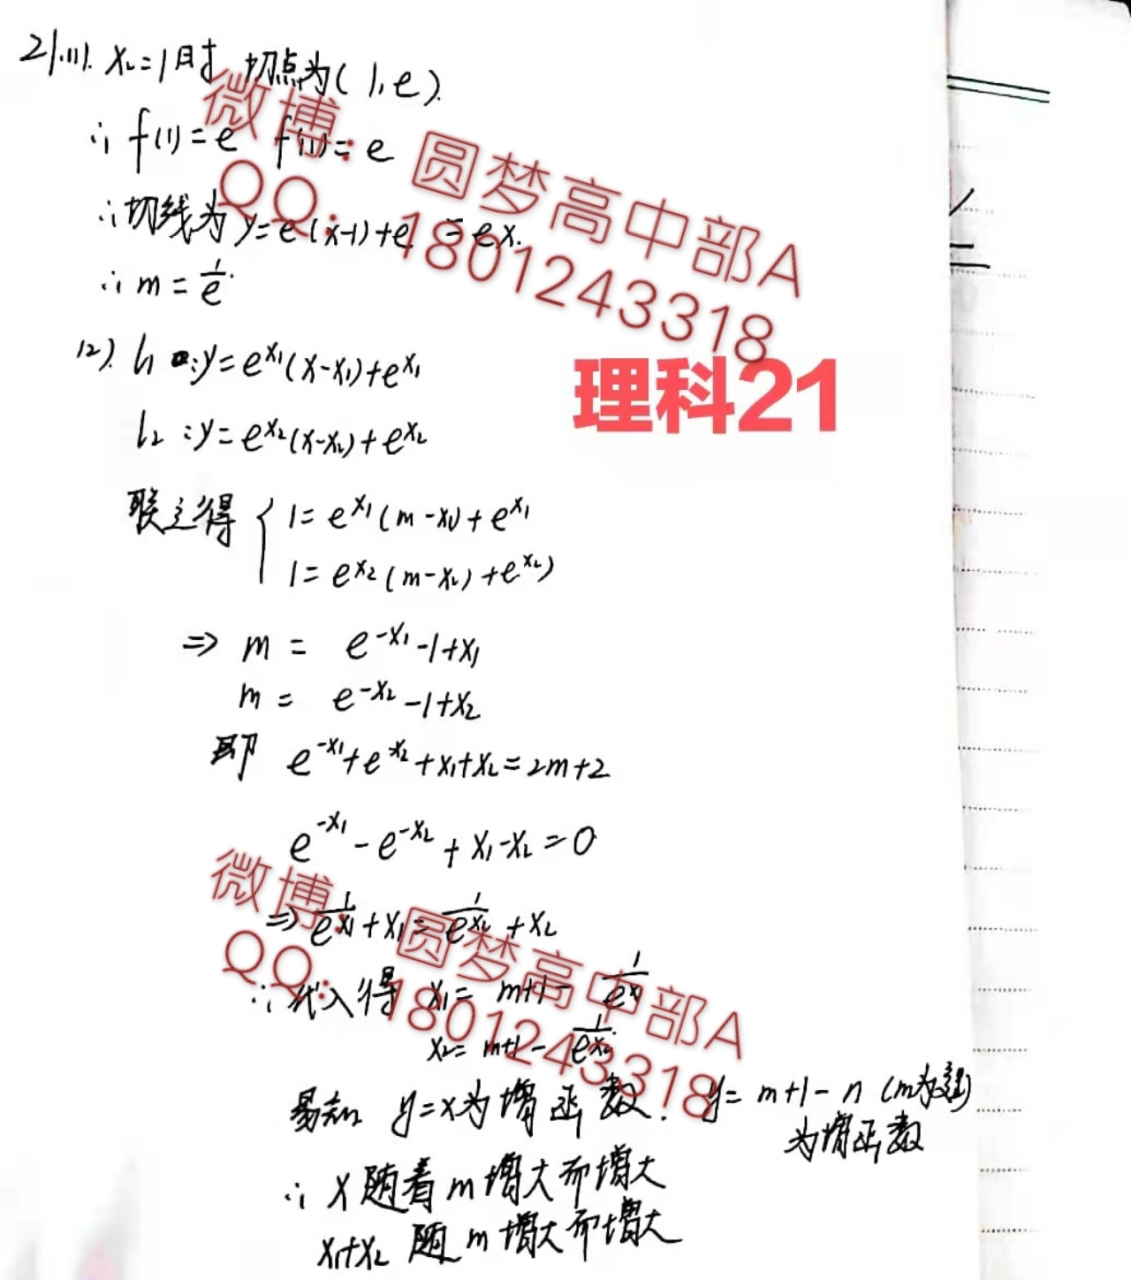 21.(1). x₂=1时 切点为(1,e).
∴ f(1)=e f'(1)=e
∴切线为 y=e(x-1)+e =ex.
∴ m=1/e.
(2). l₁:y=e^x₁(x-x₁)+e^x₁
l₂:y=e^x₂(x-x₂)+e^x₂
联立得 { 1=e^x₁(m-x₁)+e^x₁
1=e^x₂(m-x₂)+e^x₂)
⇒ m = e^-x₁-1+x₁
m = e^-x₂-1+x₂
即 e^-x₁+e^-x₂+x₁+x₂=2m+2
e^-x₁-e^-x₂+x₁-x₂=0
⇒ 1/e^x₁+x₁=1/e^x₂+x₂
∴代入得 x₁= m+1- 1/e^x₁
x₂= m+1- 1/e^x₂
易知 y=x为增函数. y= m+1-n (m为)
为增函数
∴ x随着m增大而增大
x₁+x₂ 随m增大而增大
微博：圆梦高中部A
QQ：1801243318
理科21
微博：圆梦高中部A
QQ：1801243318